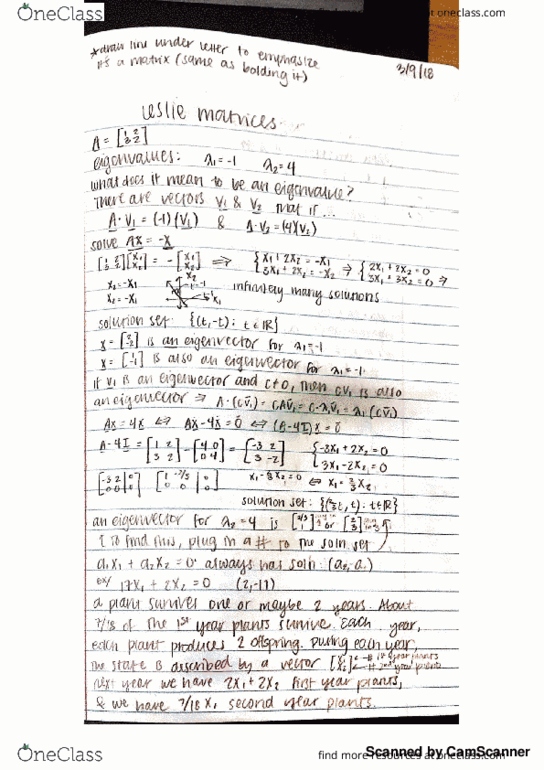 OneClass
at oneclass.com
*draw line under letter to emphasize
it's a matrix (same as bolding it)
3/9/18
Leslie matrices
A = [1 2; 3 2]
eigenvalues: λ₁=-1 λ₂=4
what does it mean to be an eigenvalue?
There are vectors v₁ & v₂ that if...
A·v₁ = (-1)(v₁) & A·v₂=(4)(v₂)
solve Ax = -x
[1 2; 3 2][x₁; x₂] = -[x₁; x₂] ⇒ { x₁+2x₂ = -x₁ ; 3x₁+2x₂ = -x₂ ⇒ { 2x₁+2x₂=0 ; 3x₁+3x₂=0 ⇒
x₂=-x₁
x₂=-x₁
infinitely many solutions
solution set: {(t,-t): t∈ℝ}
is an eigenvector for λ₁=-1
x = [1; -1] is also an eigenvector for λ₁=-1
if v₁ is an eigenvector and c≠0, then cv₁ is also
an eigenvector ⇒ A·(cv₁) = cAv₁ = c·λ₁v₁ = λ₁(cv₁)
Ax=4x ⇔ Ax-4x=0 ⇔ (A-4I)x=0
A-4I = [1 2; 3 2] - [4 0; 0 4] = [-3 2; 3 -2] { -3x₁+2x₂=0 ; 3x₁-2x₂=0
[-3 2 | 0; 0 0 | 0] [1 -2/3 | 0; 0 0 | 0] x₁-2/3x₂=0 ⇔ x₁=2/3x₂
solution set: {(2/3t,t): t∈ℝ}
an eigenvector for λ₂=4 is [2/3; 1] or [2; 3]
to find this, plug in a # to the soln set
a₁x₁+a₂x₂=0 always has soln: (a₂,-a₁)
ex/ 17x₁+2x₂=0 (2,-17)
a plant survives one or maybe 2 years. About
7/18 of the 1st year plants survive. Each year,
each plant produces 2 offspring. During each year,
the state is described by a vector [x₁; x₂] ← # 1st year plants ← # 2nd year plants
next year we have 2x₁+2x₂ first year plants,
& we have 7/18 x₁ second year plants.
Scanned by CamScanner
OneClass
find more resources at oneclass.com